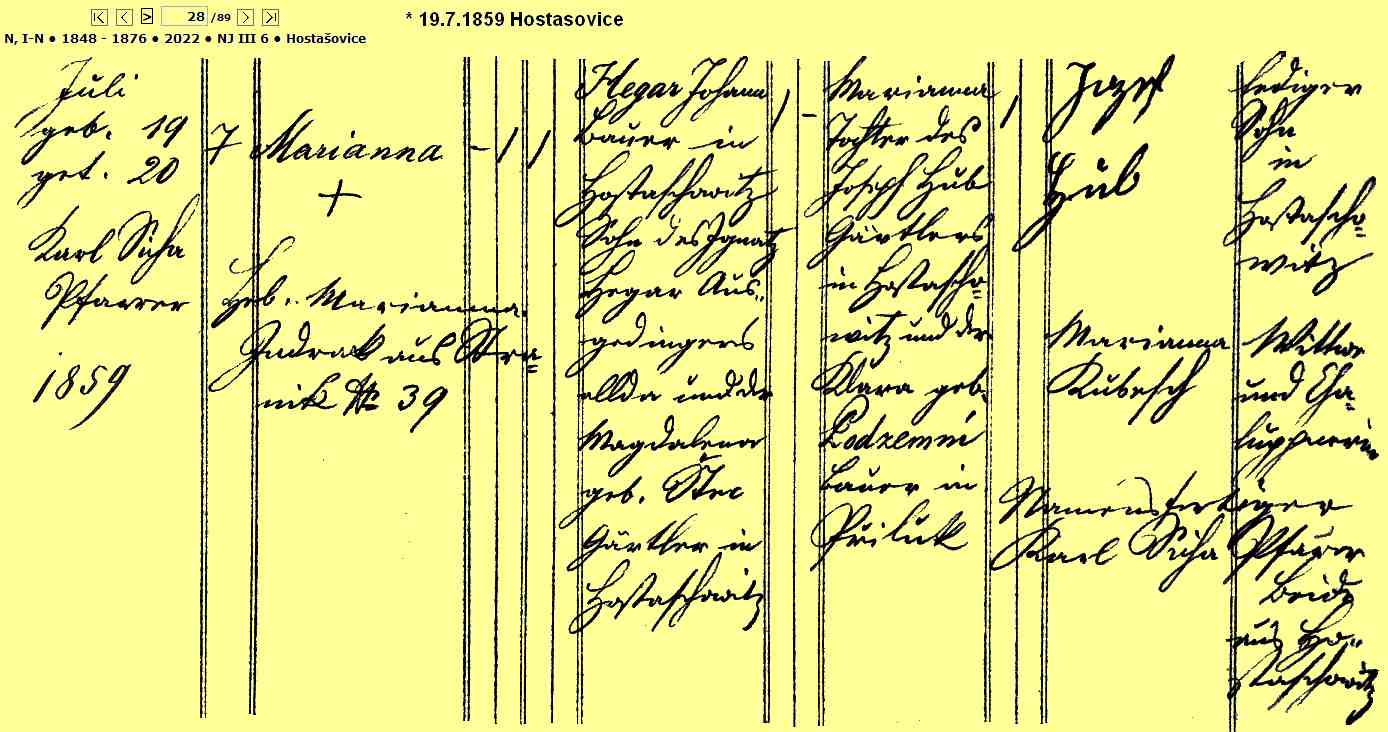 28 /89
* 19.7.1859 Hostasovice
N, I-N ● 1848 - 1876 ● 2022 ● NJ III 6 ● Hostašovice
Juli
geb. 19
get. 20
Karl Sicha
Pfarrer
1859
7
Marianna
+
Heb. Marianna
Jndrak aus Stra=
nik № 39
- 1 1
Hegar Johann
Bauer in
Hostaschowitz
Sohn des Ignatz
Hegar Aus=
gedingers
allda und der
Magdalena
geb. Štec
Gärtler in
Hostaschowitz
1 -
Marianna
Tochter des
Joseph Hub
Gärtlers
in Hostascho=
witz und der
Klara geb.
Podzemni
Bauer in
Přiluk
1
Jozef
Hub
Marianna
Kubesch
Namensfertiger
Karl Sicha Pfarrer
lediger
Sohn
in
Hostascho=
witz
Wittwe
und Cha=
luppnerin
beide
aus Ho=
staschowitz